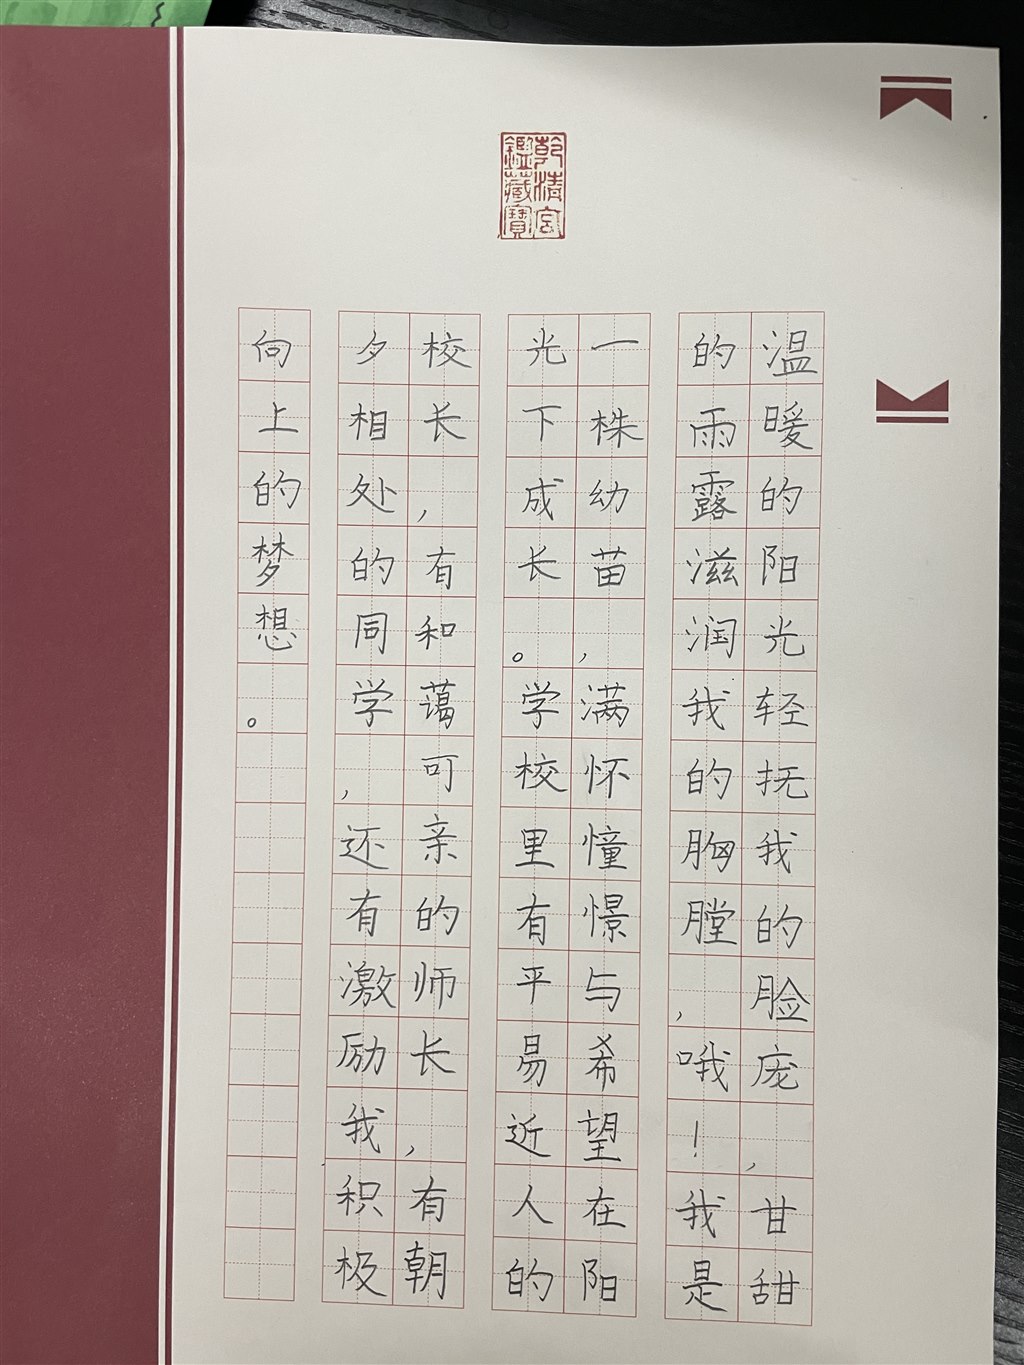 乾清宫
鑑藏寶
温暖的阳光轻抚我的脸庞，甘甜
的雨露滋润我的胸膛，哦！我是
一株幼苗，满怀憧憬与希望在阳
光下成长。学校里有平易近人的
校长，有和蔼可亲的师长，有朝
夕相处的同学，还有激励我积极
向上的梦想。